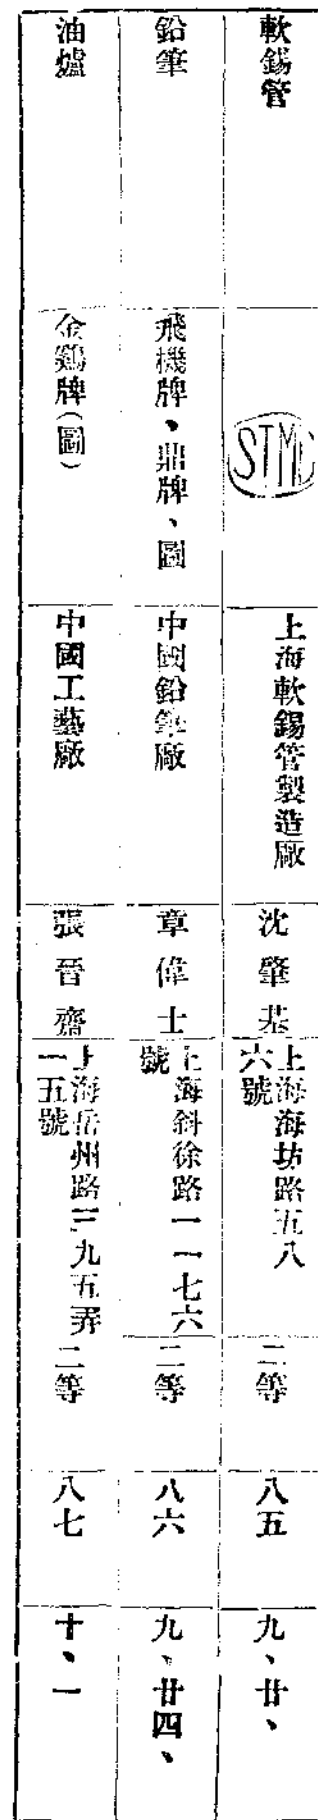 軟錫管
STMC
上海軟錫管製造廠
沈肇基
上海海坊路五八
六號
二等
八五
九、廿、
鉛筆
飛機牌、鼎牌、圖
中國鉛筆廠
章偉士
上海斜徐路一一七六
號
二等
八六
九、廿四、
油爐
金鷄牌(圖)
中國工藝廠
張晉齋
上海岳州路三九五弄
一五號
二等
八七
十、一